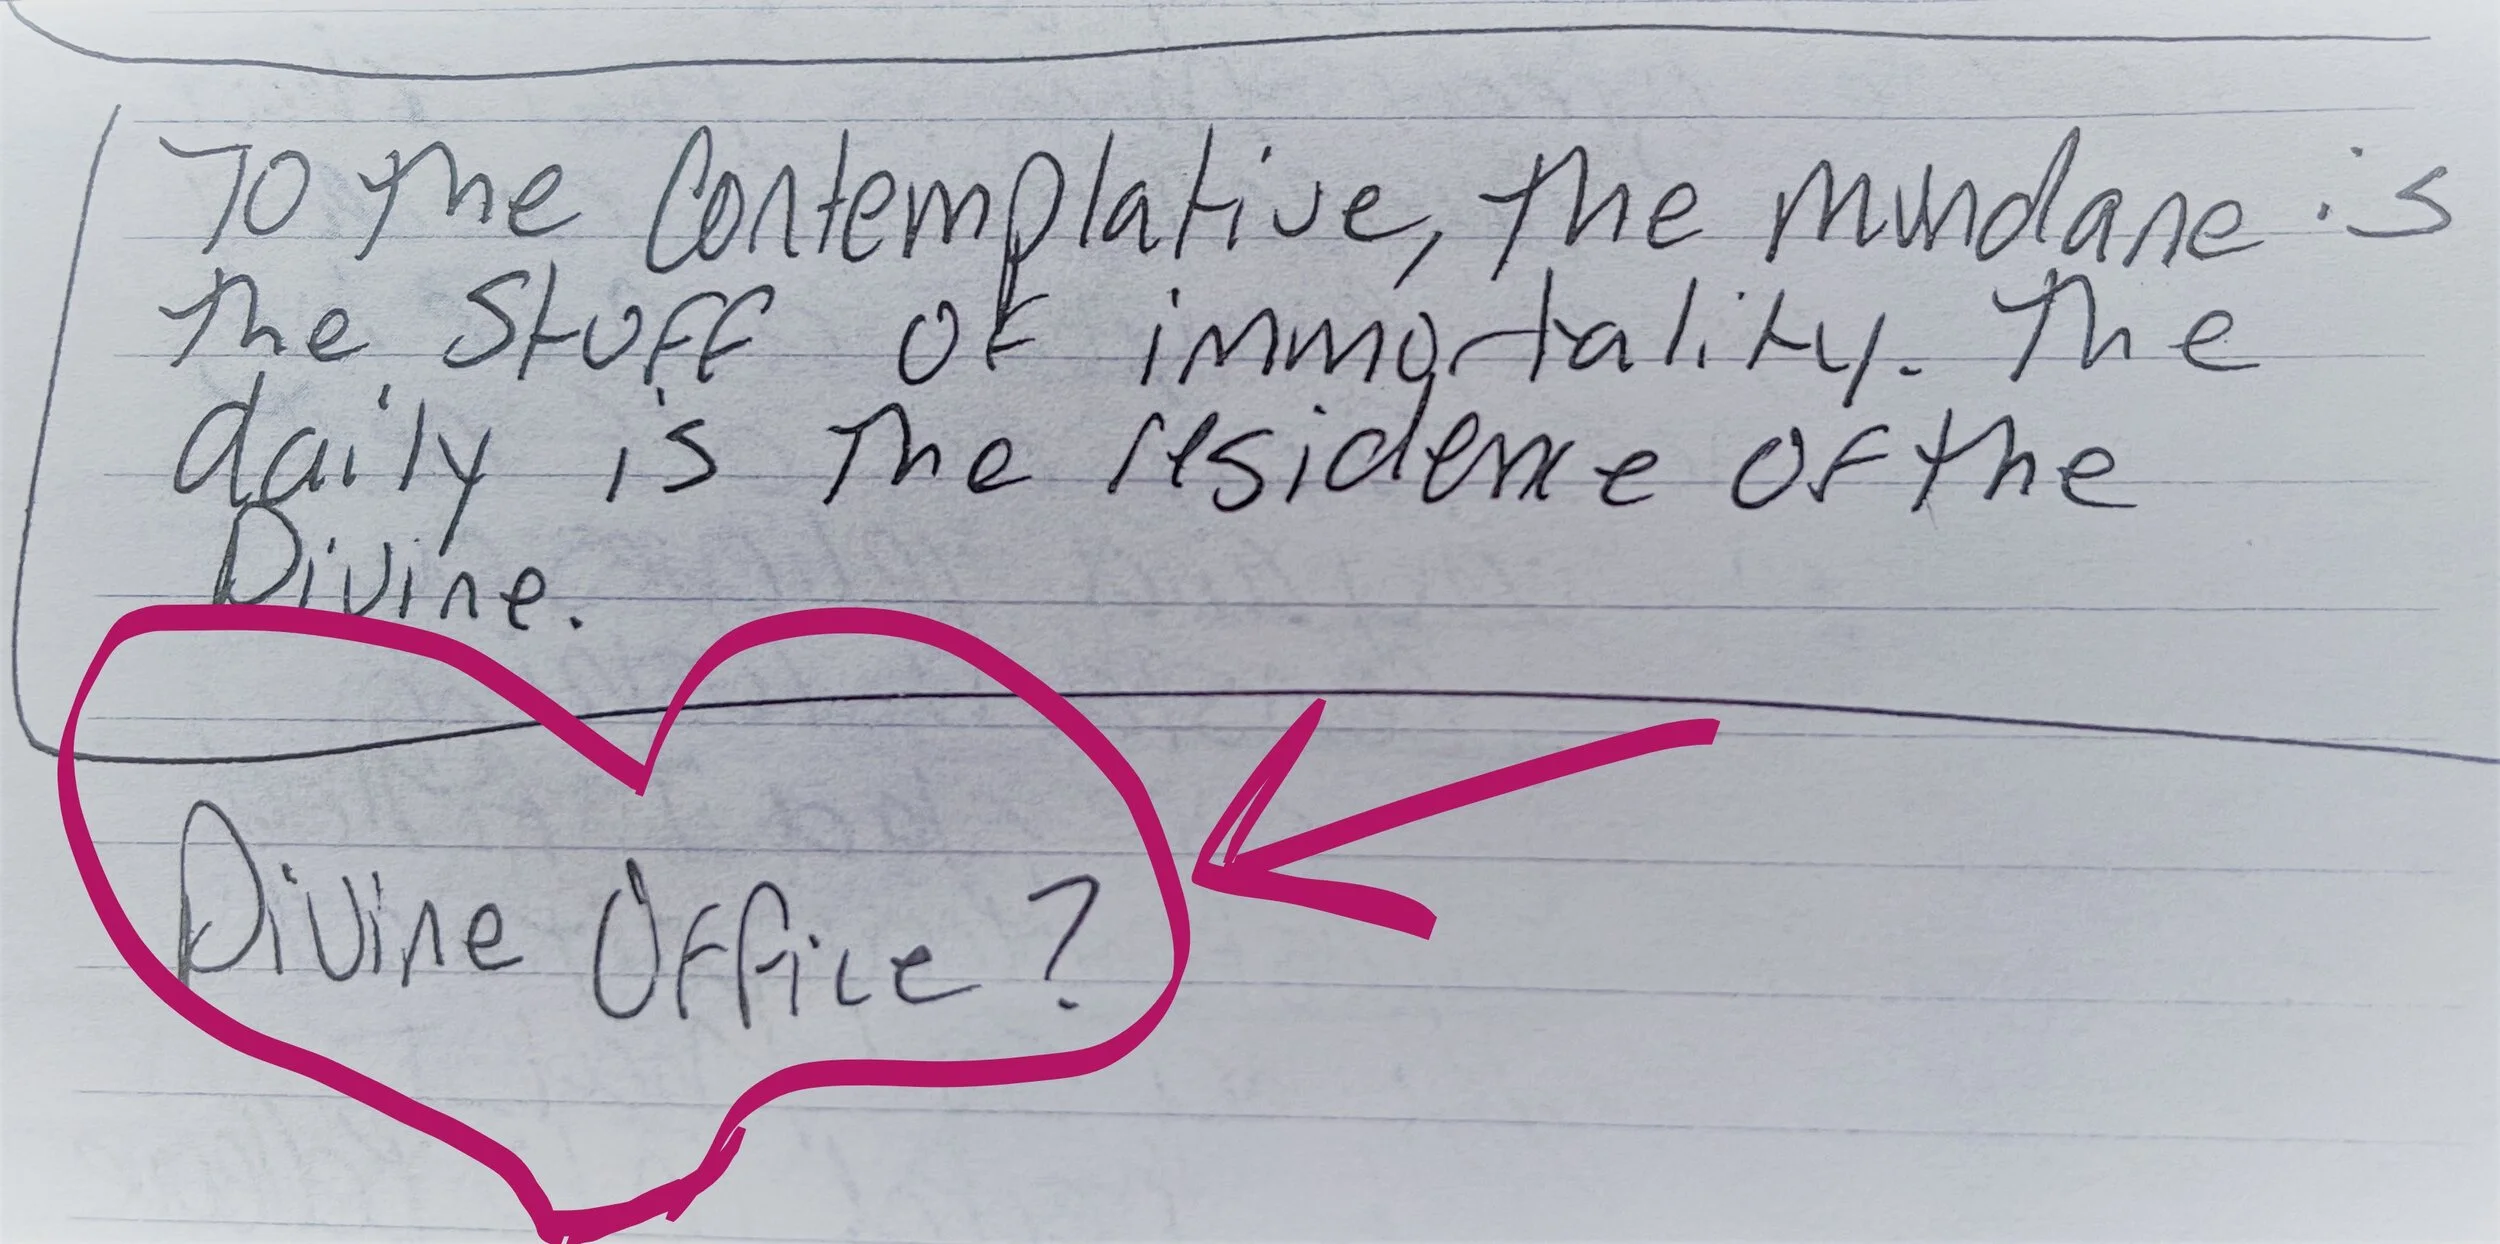 To the Contemplative, the mundane is
the stuff of immortality. The
daily is the residence of the
Divine.
Divine Office?